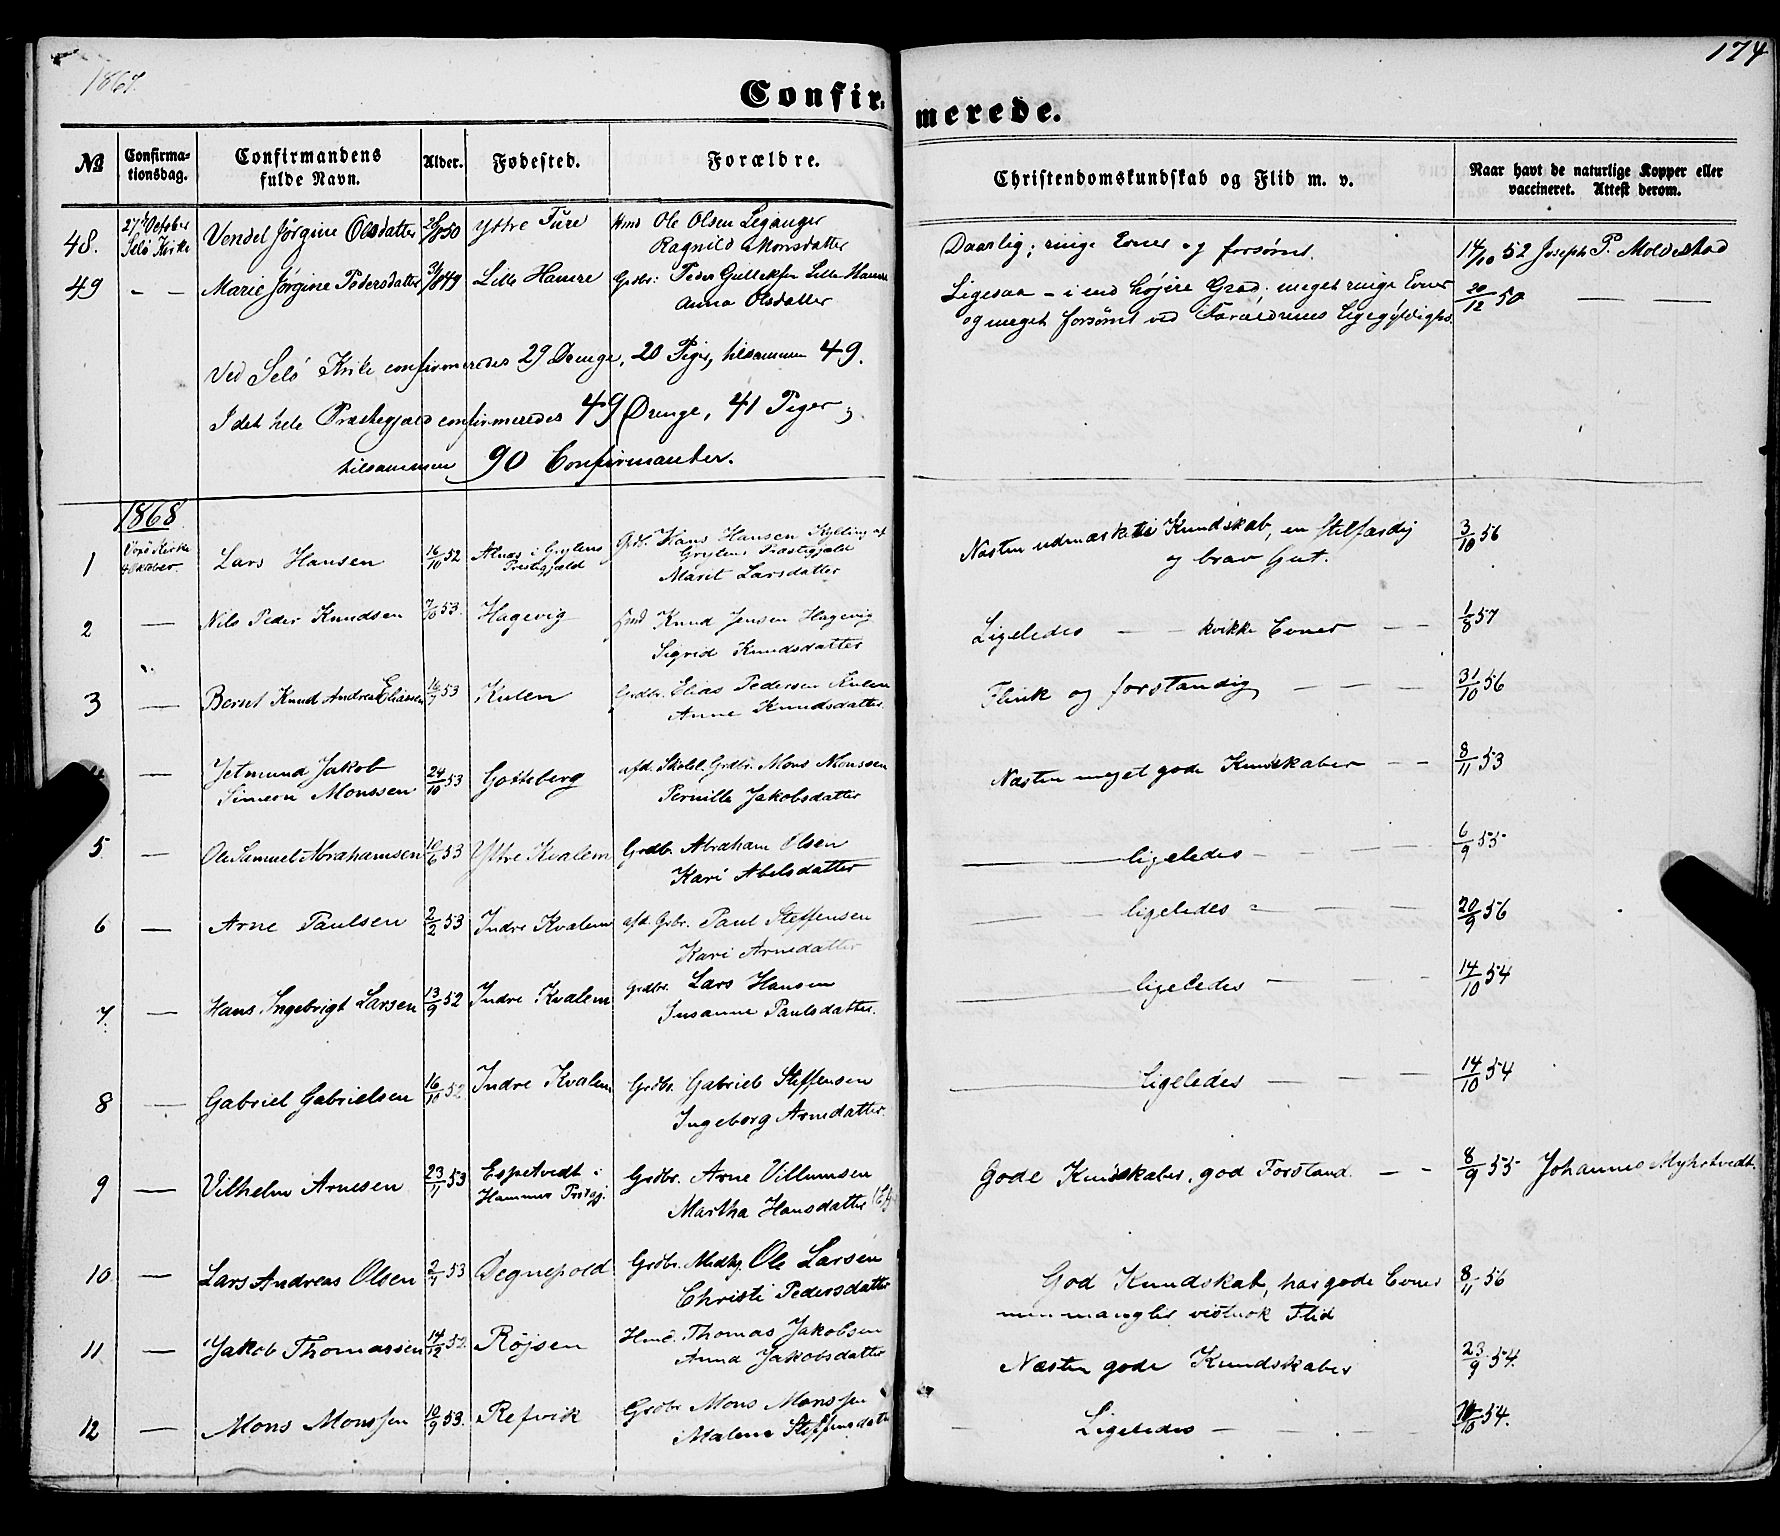 1867.
174
Confir-
merede.
No
Confirma-
tionsdag.
Confirmandens
fulde Navn.
Alder.
Fødested.
Forældre.
Christendomskundskab og Flid m. v.
Naar havt de naturlige Kopper eller
vaccineret. Attest derom.
48. 27de October Selø Kirke Vendel Jørgine Olsdatter 50 Yttre Fure Hmd Ole Olsen Leganger
Ragnild Monsdatter
Daarlig; ringe Evner og forsømt. 14/10 52 Joseph P. Moldestad
49 - - Marie Jørgine Pedersdatter 49 Lille Hamre Grdbr: Peder Gulleksen Lille Hamre
Anna Olsdatter
Ligesaa - i end højere Grad: meget ringe Evner 20/12 50 — —
og meget forsømt ved Forældrenes Ligegyldighed.
Ved Selø Kirke confirmeredes 29 Drenge, 20 Piger, tilsammen 49.
I det hele Præstegjæld confirmeredes 49 Drenge, 41 Piger,
tilsammen 90 Confirmanter.
1868.
1 Kirke October Lars Hansen 16/10 52 Alnæs i Grytens Præstegjæld Grdb. Hans Hansen Kylling af
Grytens Præstegjæld
Marit Larsdatter
Næsten udmærket Kundskab, en stilfærdig 3/10 56
og brav Gut.
2 — Nils Peder Knudsen 53. Hagevig Hmd Knud Jensen Hagevig
Sigrid Knudsdatter
Ligeledes — — kvikke Evner — — 1/8 57
3 — Bernt Knud Andreas Eliassen 16/7 53 Kulen Grdbr. Elias Pedersen Kulen
Anne Knudsdatter
Flink og forstandig — — — 31/10 56
4 — Jetmund Jakob
Simern Monssen 24/10 53 Gotteberg afd. Skolel. Grdbr. Mons Monssen
Pernille Jakobsdatter
Næsten meget gode Kundskaber — — 8/11 53
5 — Ole Samuel Abrahamsen 10/6 53 Yttre Kvalem Grdbr. Abraham Olsen
Kari Abelsdatter
— ligeledes — — — 6/9 55
6 — Arne Paulsen 2/2 53 Indre Kvalem afd. Grbr. Paul Steffensen
Kari Arnedatter
— ligeledes — — — 20/9 56
7. — Hans Ingebrigt Larsen 13/9 52 Indre Kvalem Grdbr. Lars Hansen
Susanne Paulsdatter.
— ligeledes — — — 14/10 54
8 — Gabriel Gabrielsen 16/10 52 Indre Kvalem Grdbr. Gabriel Steffensen
Ingeborg Arnedatter.
— ligeledes — — — 14/10 54
9 — Vilhelm Arnesen 23/11 53 Espetvedt i
Hammer Grdbr. Arne Villumsen
Martha Hansdatter
Gode Kundskaber, god Forstand. — — 8/9 55 Johannes Myhrtvedt
10 — Lars Andreas Olsen 53 Degnepold Grdbr. Medhj. Ole Larsen
Christi Pedersdatter
God Kundskab, har gode Evner 8/11 56
men mangler vistnok Flid
11 — Jakob Thomassen 14/12 52. Røjsen Hmd. Thomas Jakobsen
Anna Jakobsdatter
Næsten gode Kundskaber 23/9 54.
12 — Mons Monssen 10/9 53. Refvik Grdbr. Mons Monssen
Malene Steffensdatter
— Ligeledes — — — 54.